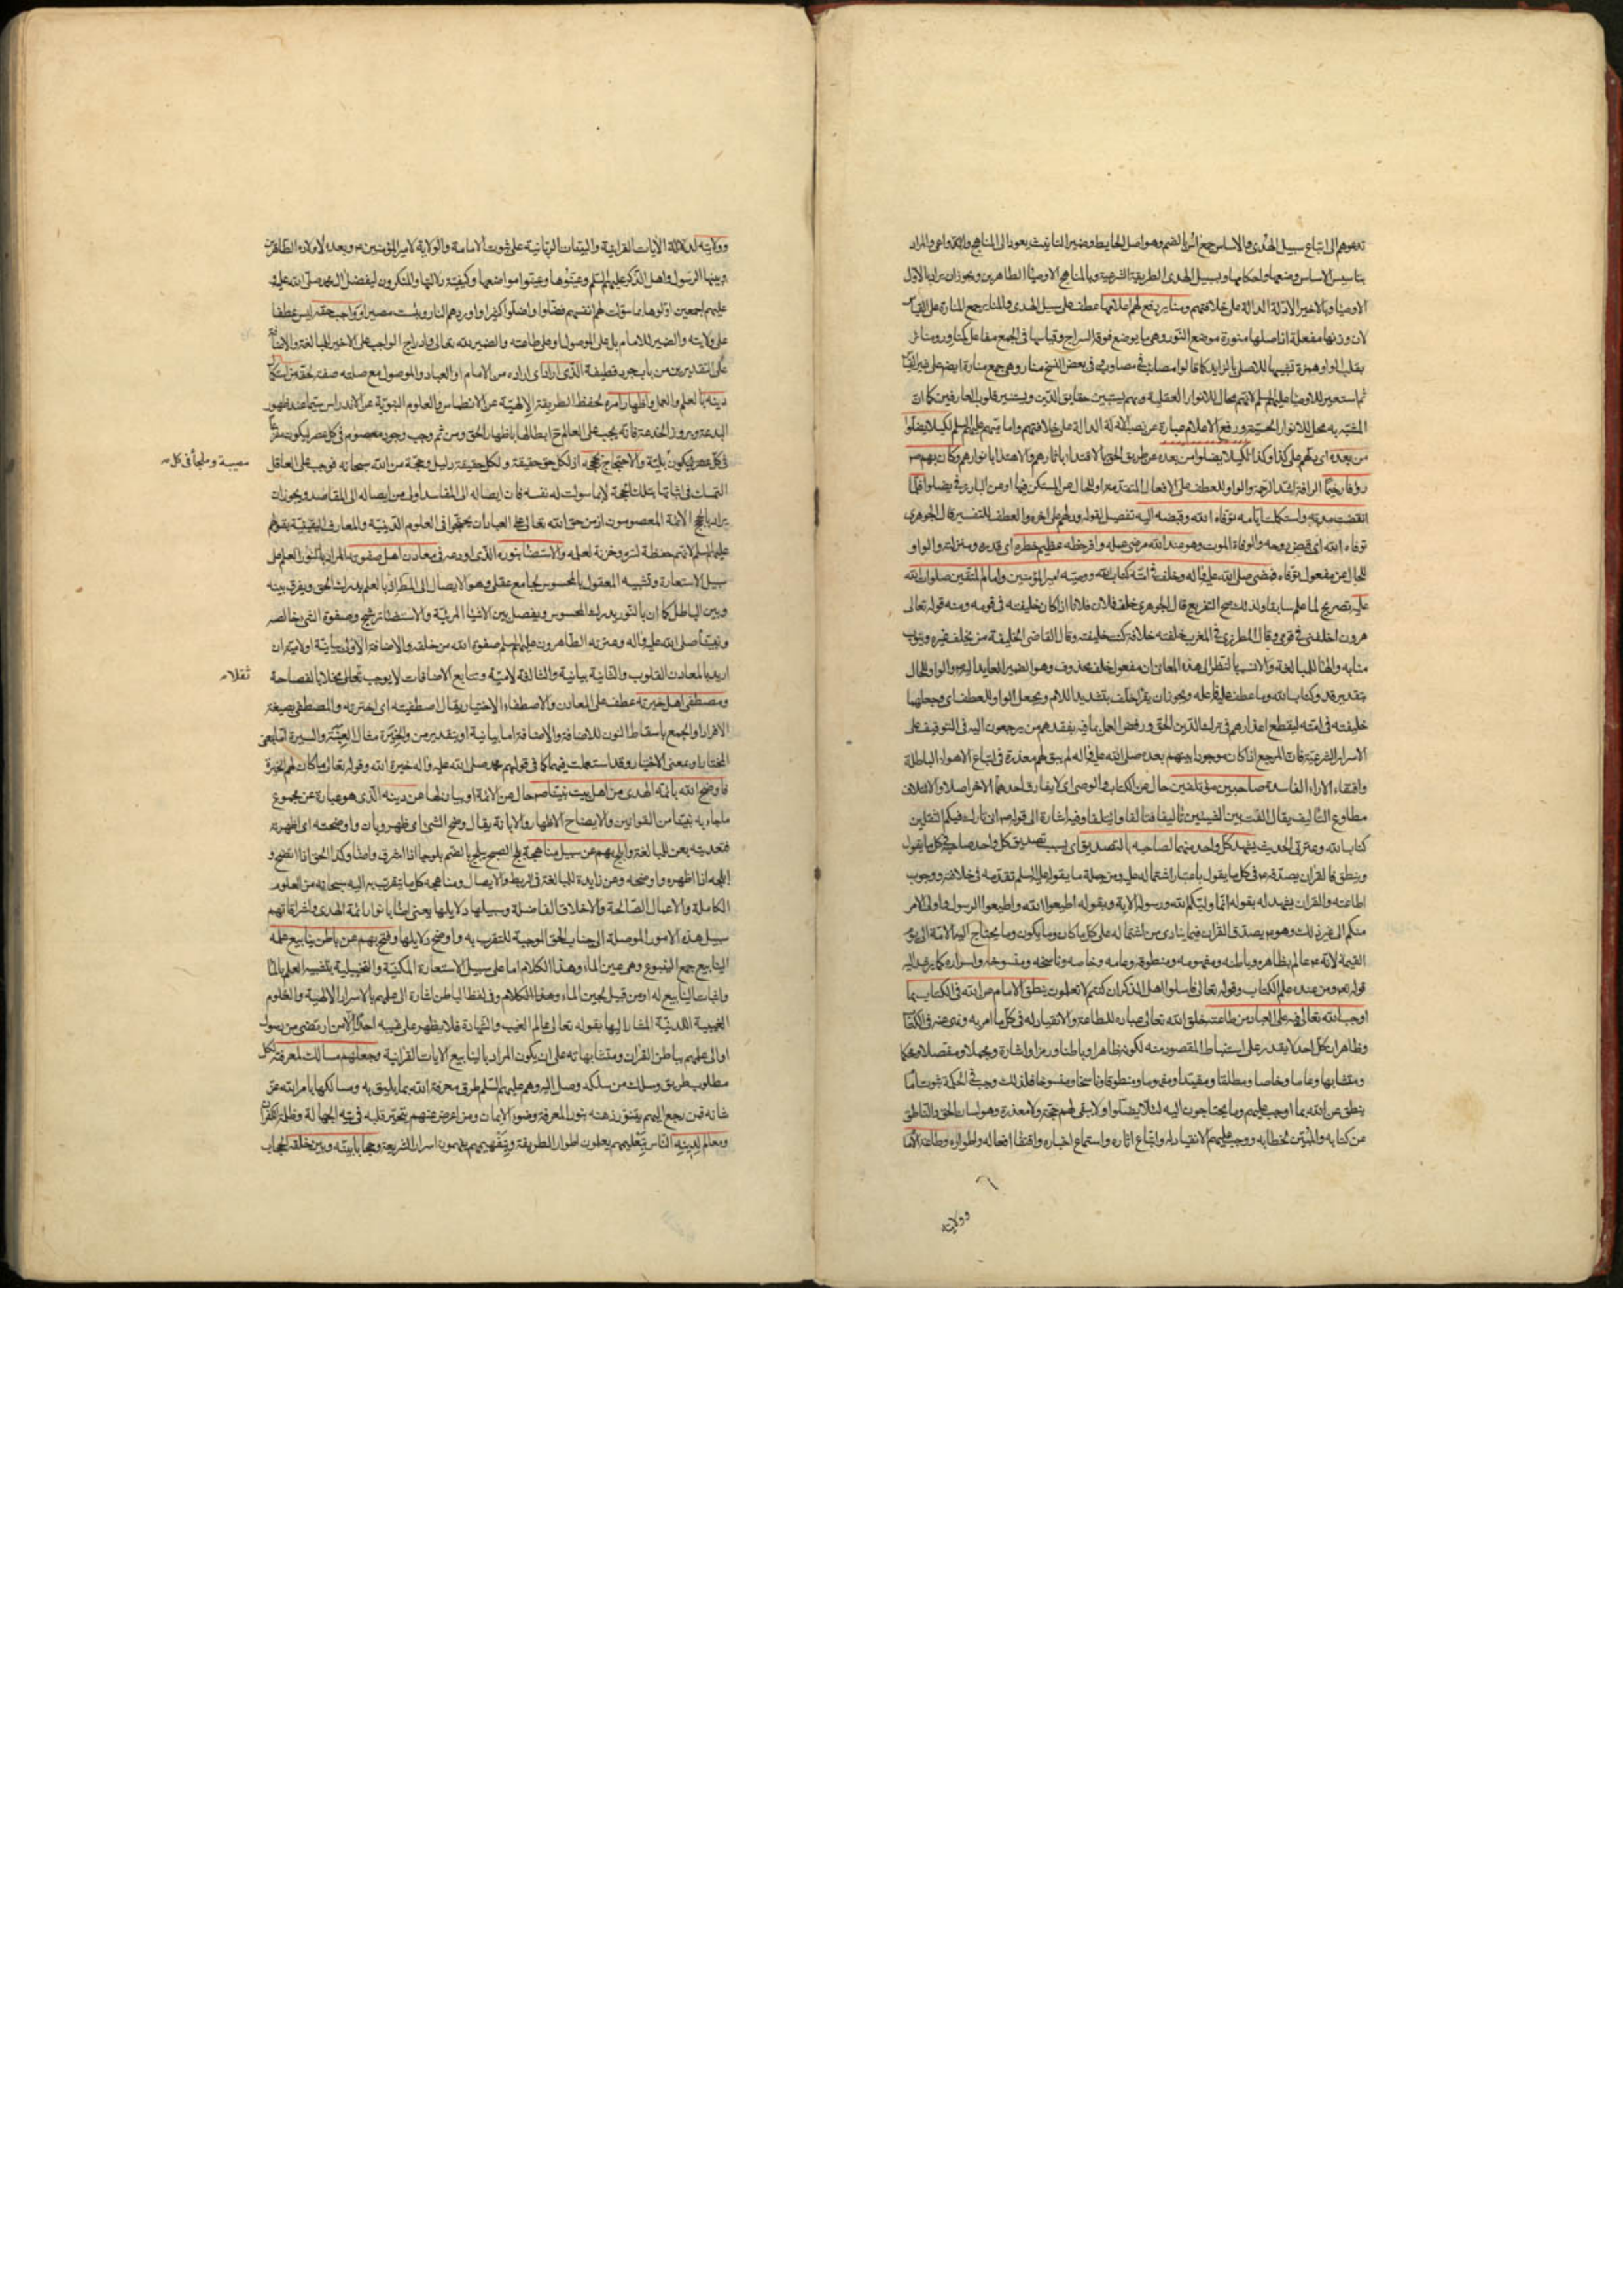 تدعوهم الى اتباع سبيل الهدى والاساس جمع اس بالضم وهو اصل الحايط وضمير التانيث يعود الى المناهج والدواعى والمراد
بتاسيس الاساس وضعها واحكامها وبسبيل الهدى الطريقة الشرعية وبالمناهج الاوصيا الطاهرين ويجوز ان يراد بالاول
الاوصيا وبالاخير الادلة الدالة على خلافتهم ومناير رفع لهم اعلامها عطف على سبيل الهدى والمناير جمع المنارة على القياس
لان وزنها مفعلة اذ اصلها منورة موضع النور وهى ما يوضع فوقه السراج وقياسها فى الجمع مفاعل كمناور ومنائر
بقلب الواو همزة تشبيها للاصلى بالزايد كما قالوا مصائب فى مصاوب وفى بعض النسخ منار وهى جمع منارة ايضا على غير القياس
ثم استعير للاوصيا عليهم السلم لانهم محال للانوار العقلية وبهم يستبين حقايق الدين ويستنير قلوب العارفين كما ان
المشبه به محال للانوار الحسية ورفع الاعلام عبارة عن نصب الادلة الدالة على خلافتهم وامامتهم عليهم السلم لكيلا يضلوا
من بعده اى دلهم على كذا وكذا لكيلا يضلوا من بعده عن طريق الحق بالاقتداء باثارهم والاهتدا بانوارهم وكان بهم ص
رؤفا رحيما الرافة اشد الرحمة والواو للعطف على الافعال المتقدمة او للحال عن المستكن فيها او عن البارز فى يضلوا فلما
انقضت مدته واستكملت ايامه توفاه الله وقبضه اليه تفصيل لقوله ودلهم الى اخره والعطف للتفسير قال الجوهرى
توفاه الله اى قبض روحه والوفاة الموت وهو عند الله مرضى عمله وافر حظه عظيم خطره اى قدره ومنزلته والواو
للحال عن مفعول توفاه فمضى صلى الله عليه واله وخلف فى امته كتاب الله ووصيه امير المؤمنين وامام المتقين صلوات الله
عليه تصريح لما علم سابقا ولذلك صح التفريع قال الجوهرى خلف فلان فلانا اذا كان خليفته فى قومه ومنه قوله تعالى
هرون اخلفنى فى قومى وقال المطرزى فى المغرب خلفته خلافة كنت خليفته وقال القاضى الخليفة من يخلف غيره وينوب
منابه والهاء للمبالغة والانسب بالنظر الى هذه المعانى ان مفعول خلف محذوف وهو الضمير العايد اليه والواو للحال
بتقدير قد وكتاب الله وما عطف عليه فاعله ويجوز ان يقرا خلف بتشديد اللام ويجعل الواو للعطف اى وجعلهما
خليفته فى امته ليقطع اعذارهم فى ترك الدين الحق ورفض العمل بما فيه بفقدهم من يرجعون اليه فى التوقيف على
الاسرار الشرعية فان المرجع اذا كان موجودا بينهم بعده صلى الله عليه واله لم يبق لهم معذرة فى اتباع الاهواء الباطلة
واقتفاء الاراء الفاسدة صاحبين مؤتلفين حال عن الكتاب والوصى اى لا يفارق احدهما الاخر اصلا والائتلاف
مطاوع التاليف يقال الفت بين الشيئين تاليفا فتالفا وايتلفا وفيه اشارة الى قوله ص انى تارك فيكم الثقلين
كتاب الله وعترتى الحديث يشهد كل واحد منهما لصاحبه بالتصديق اى بسبب تصديق كل واحد صاحبه فى كل ما يقول
وينطق فالقران يصدقه ع فى كل ما يقول باعتبار اشتماله عليه ومن جملة ما يقول عليه السلم تقدمه فى خلافته ووجوب
اطاعته والقران يشهد له بقوله انما وليكم الله ورسوله الاية وبقوله اطيعوا الله واطيعوا الرسول واولى الامر
منكم الى غير ذلك وهو ع يصدق القران فيما ينادى من اشتماله على كل ما كان وما يكون وما يحتاج اليه الامة الى يوم
القيمة لانه ع عالم بظاهره وباطنه ومفهومه ومنطوقه وعامه وخاصه وناسخه ومنسوخه واسراره كما يرشد اليه
قوله تعالى ومن عنده علم الكتاب وقوله تعالى فاسلوا اهل الذكر ان كنتم لا تعلمون ينطق الامام عن الله فى الكتاب بما
اوجب الله تعالى فيه على العباد من طاعته خلق الله تعالى عباده للطاعة والانقياد له فى كل ما امر به ونهى عنه فى الكتاب
وظاهر ان كل احد لا يقدر على استنباط المقصود منه لكونه ظاهرا وباطنا ورمزا واشارة ومجملا ومفصلا ومحكما
ومتشابها وعاما وخاصا ومطلقا ومقيدا ومفهوما ومنطوقا وناسخا ومنسوخا فلذلك وجب فى الحكمة ثبوت امام
ينطق عن الله بما اوجب عليهم وما يحتاجون اليه لئلا يضلوا ولا يبقى لهم حجة ولا معذرة وهو لسان الحق والناطق
عن كتابه والمبين لخطابه ووجب عليهم الانقياد له واتباع اثاره واستماع اخباره واقتفاء افعاله واطواره وطاعة الامام
وولايته
وولايته لدلالة الايات القرانية والبينات الربانية على ثبوت الامامة والولاية لامير المؤمنين ع وبعده لاولاده الطاهرين
وبينها الرسول واهل الذكر عليهم السلم وعينوها وعينوا مواضعها وكيفية دلالتها والمنكرون لفضل ال محمد صلى الله عليه و
عليهم اجمعين اولوها بما سولت لهم انفسهم فضلوا واضلوا كثيرا واوردهم النار وبئست مصيرا وواجب حقه ليس عطفا
على ولايته والضمير للامام بل على الموصول او على طاعته والضمير لله تعالى وادراج الواجب على الاخير للمبالغة والاضافة
على التقديرين من باب جرد قطيفة الذى اراد اى اراده من الامام او العباد والموصول مع صلته صفة لحقه من استكمال
دينه بالعلم والعمل واظهار امره لحفظ الطريقة الالهية عن الانطماس والعلوم النبوية عن الاندراس سيما عند ظهور
البدعة وبروز الخدعة فانه يجب على العالم ح ابطالها باظهار الحق ومن ثم وجب وجود معصوم فى كل عصر ليكون مفزعا
فى كل عصر ليكون بلية والاحتجاج بحججه اذ لكل حق حقيقة ولكل حقيقة دليل وحجة من الله سبحانه فوجب على العاقل
مصيبة وملجأ فى كل
التمسك فى اثباتها بتلك الحجة لا بما سولت له نفسه فان ايصاله الى المفاسد اولى من ايصاله الى المقاصد ويجوز ان
يراد بالحجج الائمة المعصومون اذ من حق الله تعالى على العباد ان يحتجوا فى العلوم الدينية والمعارف اليقينية بقولهم
عليهم السلم لانهم حفظة لسره وخزنة لعلمه والاستضاء بنوره الذى اودعه فى معادن اهل صفوته المراد بالنور العلم على
سبيل الاستعارة وتشبيه المعقول بالمحسوس بجامع عقلى وهو الايصال الى المطلوب اذ بالعلم يدرك الحق ويفرق بينه
وبين الباطل كما ان بالنور يدرك المحسوس ويفصل بين الاشيا المرئية والاستضاء ترشيح وصفوة الشى خالصه
ونبينا صلى الله عليه واله وعترته الطاهرون عليهم السلم صفوة الله من خلقه والاضافة الاولى بيانية او لامية ان
اريد بالمعادن القلوب والثانية بيانية والثالثة لامية وتتابع الاضافات لا يوجب اخلالا بالفصاحة
ثقلا
ومصطفى اهل خيرته عطف على المعادن والاصطفاء الاختيار يقال اصطفيته اى اخترته والمصطفى بصيغة
الافراد او الجمع باسقاط النون للاضافة والاضافة اما بيانية او بتقدير من والخيرة مثال العنبة والسيرة اما بمعنى
المختار او بمعنى الاختيار وقد استعملت فيهما كما فى قولهم محمد صلى الله عليه واله خيرة الله وقوله تعالى ما كان لهم الخيرة
فاوضح الله بائمة الهدى من اهل بيت نبينا ص حال عن الائمة او بيان لها عن دينه الذى هو عبارة عن مجموع
ما جاء به نبينا من القوانين والايضاح الاظهار والابانة يقال وضح الشئ اى ظهر وبان واوضحته اى اظهرته
فتعديته بعن للمبالغة وابلج بهم عن سبيل مناهجه بلج الصبح يبلج بالضم بلوجا اذا اشرق واضاء وكذا الحق اذا اتضح و
ابلجه اذا اظهره واوضحه وعن زايدة للمبالغة فى الربط والايصال ومناهجه كل ما يتقرب به اليه سبحانه من العلوم
الكاملة والاعمال الصالحة والاخلاق الفاضلة وسبيلها دلايلها يعنى اضاء بانوار ائمة الهدى واشراقاتهم
سبيل هذه الامور الموصلة الى جناب الحق الموجبة للتقرب به واوضح دلايلها وفتح بهم عن باطن ينابيع علمه
الينابيع جمع الينبوع وهى عين الماء وهذا الكلام اما على سبيل الاستعارة المكنية والتخييلية بتشبيه العلم بالماء
واثبات الينابيع له او من قبيل لجين الماء وفى لفظ الباطن اشارة الى علمهم بالاسرار الالهية والعلوم
الغيبية اللدنية المشار اليها بقوله تعالى عالم الغيب والشهادة فلا يظهر على غيبه احدا الا من ارتضى من رسول
او الى علمهم بباطن القران ومتشابهاته على ان يكون المراد بالينابيع الايات القرانية وجعلهم مسالك لمعرفته لكل
مطلوب طريق وسلك من سلكه وصل اليه وهم عليهم السلم طرق معرفة الله بما يليق به ومسالكها بامر الله عز
شانه فمن رجع اليهم يتنور ذهنه بنور المعرفة وضوء الايمان ومن اعرض عنهم يتحير قلبه فى تيه الجهالة وظلمة الكفران
ومعالم لدينه الناس بتعليمهم يعلمون اطوار الطريقة وبتفهيمهم يفهمون اسرار الشريعة وحجابا بينه وبين خلقه الحجاب